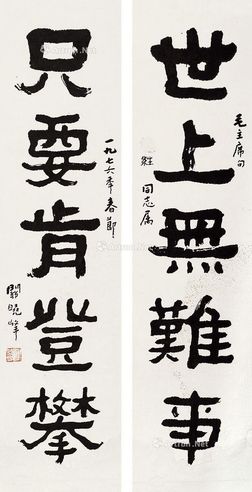 世上無難事
毛主席句
同志属
只要肯登攀
一九七六年春節